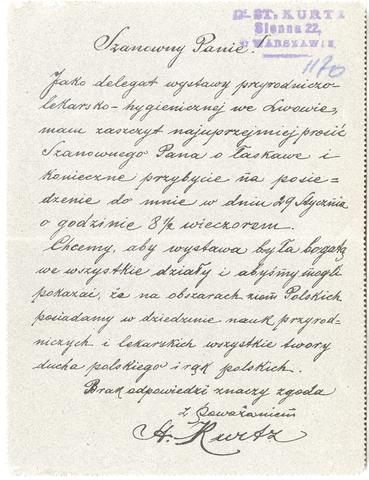 Dr ST. KURTZ
Sienna 22,
W WARSZAWIE
1170
Szanowny Panie!
Jako delegat wystawy przyrodniczo-
lekarsko-hygienicznej we Lwowie,
mam zaszczyt najuprzejmiej prosić
Szanownego Pana o łaskawe i
konieczne przybycie na posie-
dzenie do mnie w dniu 29 Stycznia
o godzinie 8½ wieczorem.
Chcemy, aby wystawa była bogatą
we wszystkie działy i abyśmy mogli
pokazać, że na obszarach ziem Polskich
posiadamy w dziedzinie nauk przyrod-
niczych i lekarskich wszystkie twory
ducha polskiego i rąk polskich.
Brak odpowiedzi znaczy zgoda
z poważaniem
St. Kurtz